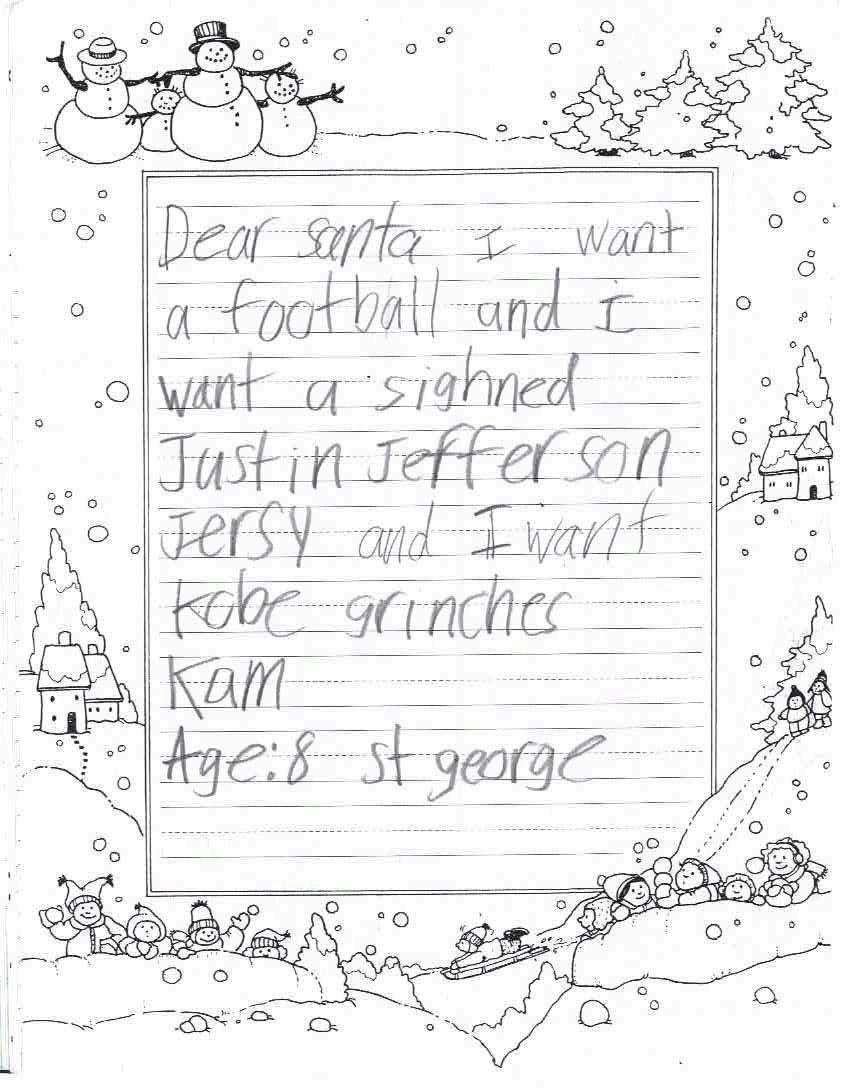 Dear santa I want
a football and i
want a sighned
Justin Jefferson
Jersy and I want
Kobe grinches
Kam
Age:8 st george